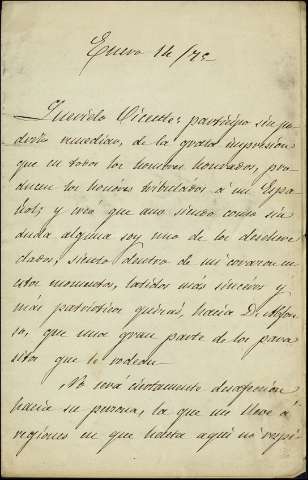 Enero 14/75
Querido Vicente: participo sin po-
derlo remediar, de la grata impresion
que en todos los hombres honrados, pro-
ducen los honores tributados á un Espa-
ñol; y creo que aun siendo como sin
duda alguna soy, uno de los deshere-
dados, siento dentro de mi corazon en
estos momentos, latidos más sinceros y
más patrióticos quizás, hacia Dn. Alfon-
so, que una gran parte de los pará-
sitos que le rodean.
No será ciertamente desafeccion
hacia su persona, la que me lleve á
regiones en que hasta aquí no respi-